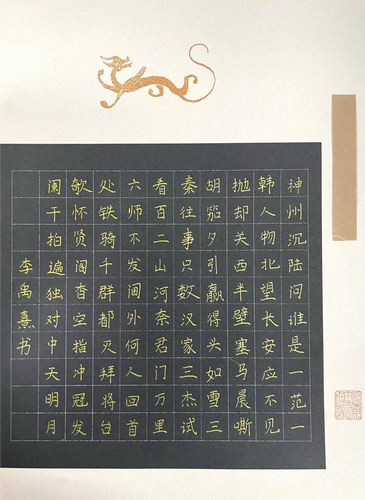 神州沉陆问谁是一范一
韩人物北望长安应不见
抛却关西半壁塞马晨嘶
胡笳夕引赢得头如雪三
秦往事只数汉家三杰试
看百二山河奈君门万里
六师不发阃外何人回首
处铁骑千群都灭拜将台
欹怀贤阁杳空指冲冠发
阑干拍遍独对中天明月
李禹熹书